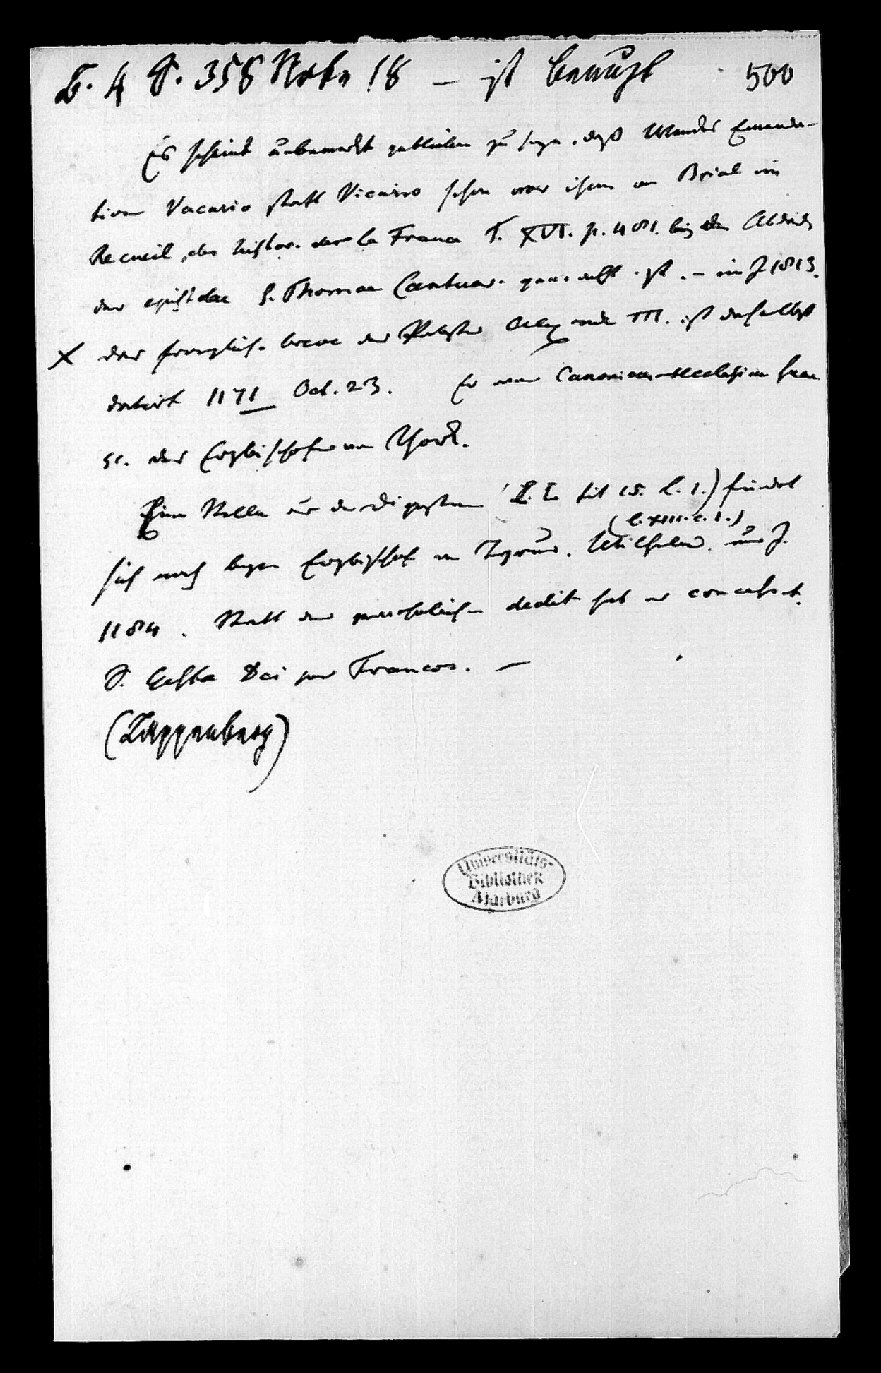 B. 4 S. 358 Note 18 — ist benutzt 500
Es scheint unbemerkt geblieben zu seyn, daß Wencks Emenda-
tion Vacario statt Vicario schon vor ihm von Brial im
Recueil des histor. de la France T. XVI. p. 481. bey dem Abdruck
der epistolae S. Thomae Cantuar. gemacht ist. — im J 1813.
X das fragliche breve des Pabstes Alexander III. ist daselbst
datirt 1171 Oct. 23. Er war Canonicus ecclesiae suae
sc. des Erzbischofes von York.
Eine Stelle aus den Digesten (L. tit l. 1.) findet
(l. XIII. c. 1.)
sich auch beym Erzbischof von Tyrus, Wilhelm, ums J.
1184. Statt des dedit hat er concessit.
S. Gesta Dei per Francos. —
(Lappenberg)
Universitäts-
Bibliothek
Marburg